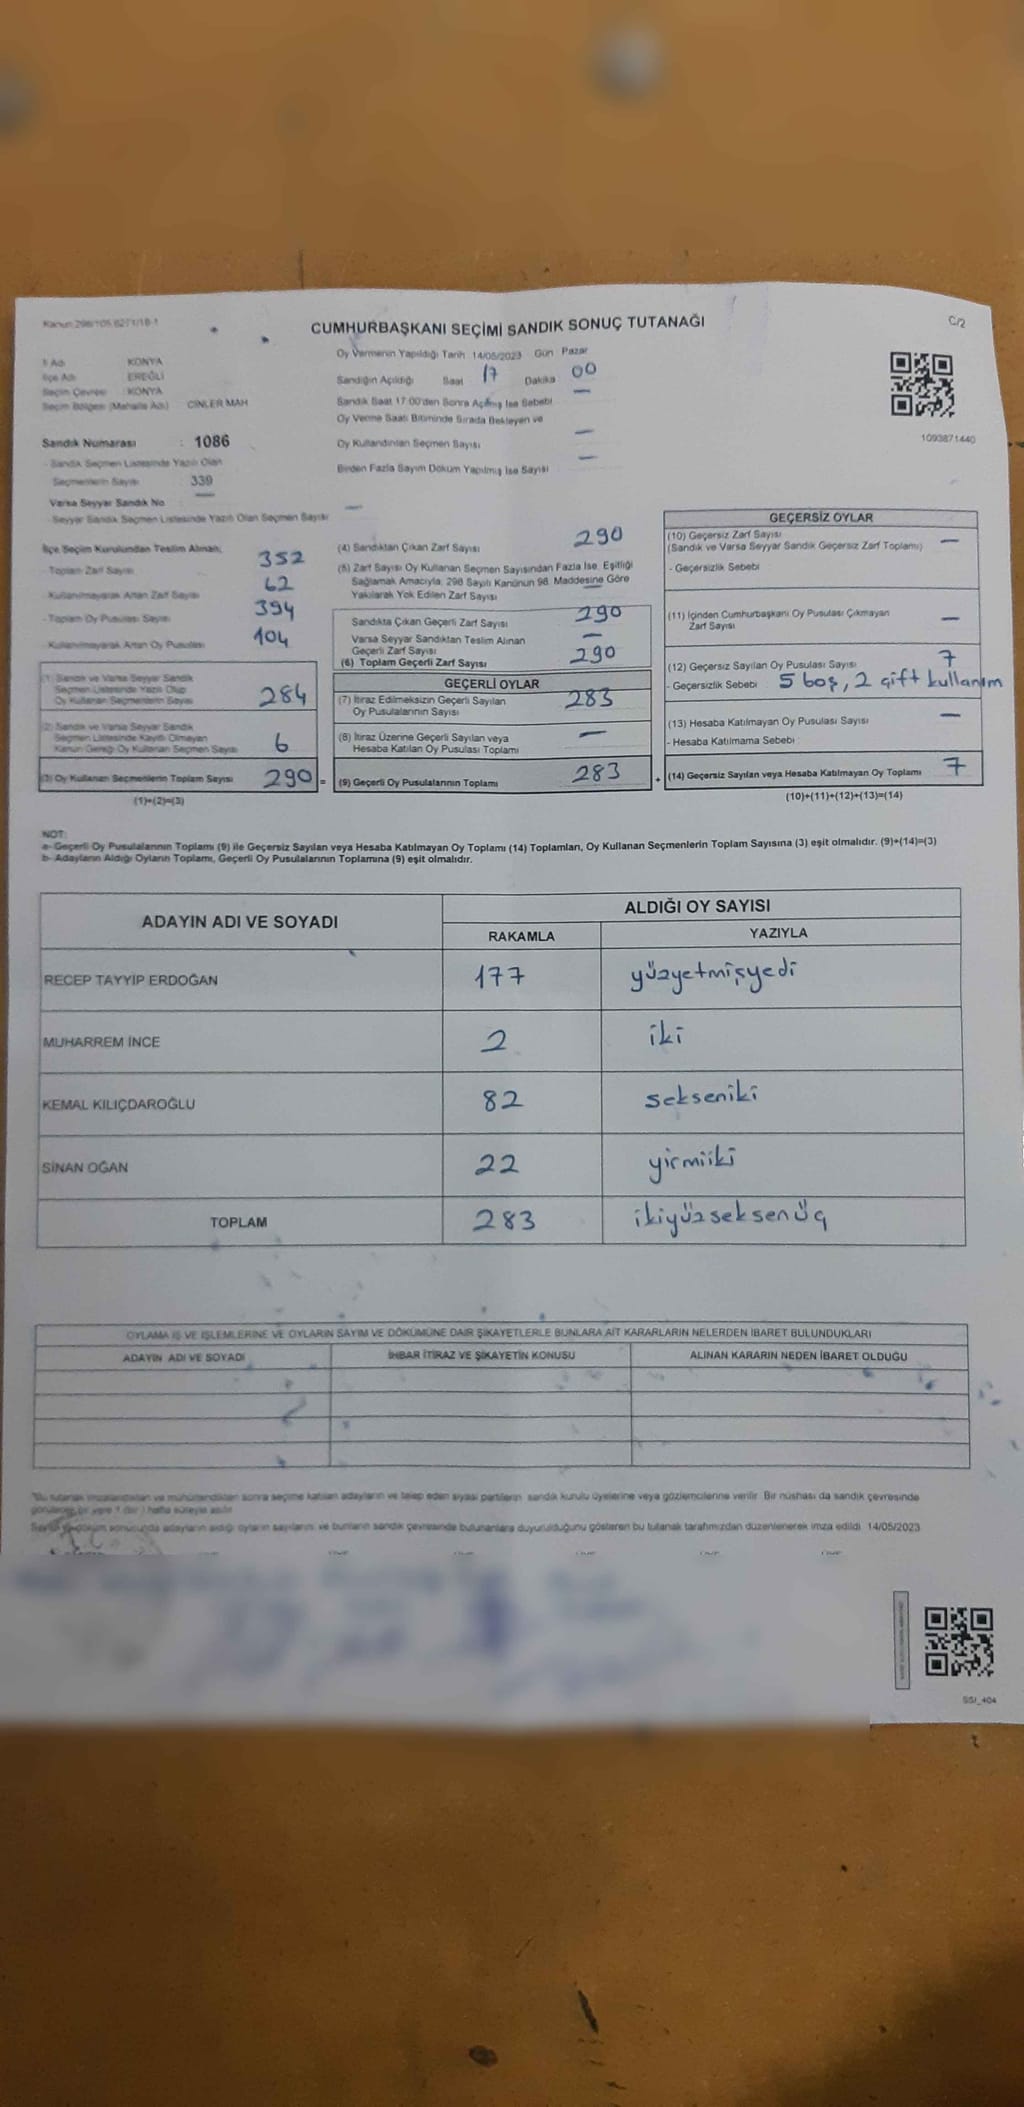 Kanun 298/105 827 1/18-1
CUMHURBAŞKANI SEÇİMİ SANDIK SONUÇ TUTANAĞI
C/2
İl Adı KONYA
İlçe Adı EREĞLİ
Seçim Çevresi KONYA
Seçim Bölgesi (Mahalle Adı) CİNLER MAH
Sandık Numarası : 1086
- Sandık Seçmen Listesinde Yazılı Olan
Seçmenlerin Sayısı 339
Varsa Seyyar Sandık No —
- Seyyar Sandık Seçmen Listesinde Yazılı Olan Seçmen Sayısı —
Oy Vermenin Yapıldığı Tarih 14/05/2023 Gün Pazar
Sandığın Açıldığı Saat 17 Dakika 00
Sandık Saat 17:00'den Sonra Açılmış İse Sebebi —
Oy Verme Saati Bitiminde Sırada Bekleyen ve
Oy Kullandırılan Seçmen Sayısı —
Birden Fazla Sayım Döküm Yapılmış İse Sayısı —
1093871440
İlçe Seçim Kurulundan Teslim Alınan;
- Toplam Zarf Sayısı 352
- Kullanılmayarak Artan Zarf Sayısı 62
- Toplam Oy Pusulası Sayısı 394
- Kullanılmayarak Artan Oy Pusulası 104
(1) Sandık ve Varsa Seyyar Sandık
Seçmen Listesinde Yazılı Olup
Oy Kullanan Seçmenlerin Sayısı 284
(2) Sandık ve Varsa Seyyar Sandık
Seçmen Listesinde Kayıtlı Olmayan
Kanun Gereği Oy Kullanan Seçmen Sayısı 6
(3) Oy Kullanan Seçmenlerin Toplam Sayısı 290 =
(1)+(2)=(3)
(4) Sandıktan Çıkan Zarf Sayısı 290
(5) Zarf Sayısı Oy Kullanan Seçmen Sayısından Fazla İse, Eşitliği
Sağlamak Amacıyla, 298 Sayılı Kanunun 98. Maddesine Göre
Yakılarak Yok Edilen Zarf Sayısı —
Sandıkta Çıkan Geçerli Zarf Sayısı 290
Varsa Seyyar Sandıktan Teslim Alınan
Geçerli Zarf Sayısı —
(6) Toplam Geçerli Zarf Sayısı 290
GEÇERLİ OYLAR
(7) İtiraz Edilmeksizin Geçerli Sayılan
Oy Pusulalarının Sayısı 283
(8) İtiraz Üzerine Geçerli Sayılan veya
Hesaba Katılan Oy Pusulası Toplamı —
(9) Geçerli Oy Pusulalarının Toplamı 283 +
GEÇERSİZ OYLAR
(10) Geçersiz Zarf Sayısı
(Sandık ve Varsa Seyyar Sandık Geçersiz Zarf Toplamı) —
- Geçersizlik Sebebi
(11) İçinden Cumhurbaşkanı Oy Pusulası Çıkmayan
Zarf Sayısı —
(12) Geçersiz Sayılan Oy Pusulası Sayısı 7
- Geçersizlik Sebebi 5 boş, 2 çift kullanım
(13) Hesaba Katılmayan Oy Pusulası Sayısı —
- Hesaba Katılmama Sebebi :
(14) Geçersiz Sayılan veya Hesaba Katılmayan Oy Toplamı 7
(10)+(11)+(12)+(13)=(14)
NOT:
a- Geçerli Oy Pusulalarının Toplamı (9) ile Geçersiz Sayılan veya Hesaba Katılmayan Oy Toplamı (14) Toplamları, Oy Kullanan Seçmenlerin Toplam Sayısına (3) eşit olmalıdır. (9)+(14)=(3)
b- Adayların Aldığı Oyların Toplamı, Geçerli Oy Pusulalarının Toplamına (9) eşit olmalıdır.
ADAYIN ADI VE SOYADI ALDIĞI OY SAYISI
RAKAMLA YAZIYLA
RECEP TAYYİP ERDOĞAN 177 yüzyetmişyedi
MUHARREM İNCE 2 iki
KEMAL KILIÇDAROĞLU 82 sekseniki
SİNAN OĞAN 22 yirmiiki
TOPLAM 283 ikiyüzseksenüç
OYLAMA İŞ VE İŞLEMLERİNE VE OYLARIN SAYIM VE DÖKÜMÜNE DAİR ŞİKAYETLERLE BUNLARA AİT KARARLARIN NELERDEN İBARET BULUNDUKLARI
ADAYIN ADI VE SOYADI İHBAR İTİRAZ VE ŞİKAYETİN KONUSU ALINAN KARARIN NEDEN İBARET OLDUĞU
*Bu tutanak imzalandıktan ve mühürlendikten sonra seçime katılan adayların ve talep eden siyasi partilerin sandık kurulu üyelerine veya gözlemcilerine verilir. Bir nüshası da sandık çevresinde
görülecek bir yere 1 (bir) hafta süreyle asılır
Sayım ve döküm sonucunda adayların aldığı oyların sayılarını ve bunların sandık çevresinde bulunanlara duyurulduğunu gösteren bu tutanak tarafımızdan düzenlenerek imza edildi. 14/05/2023
SSI_404